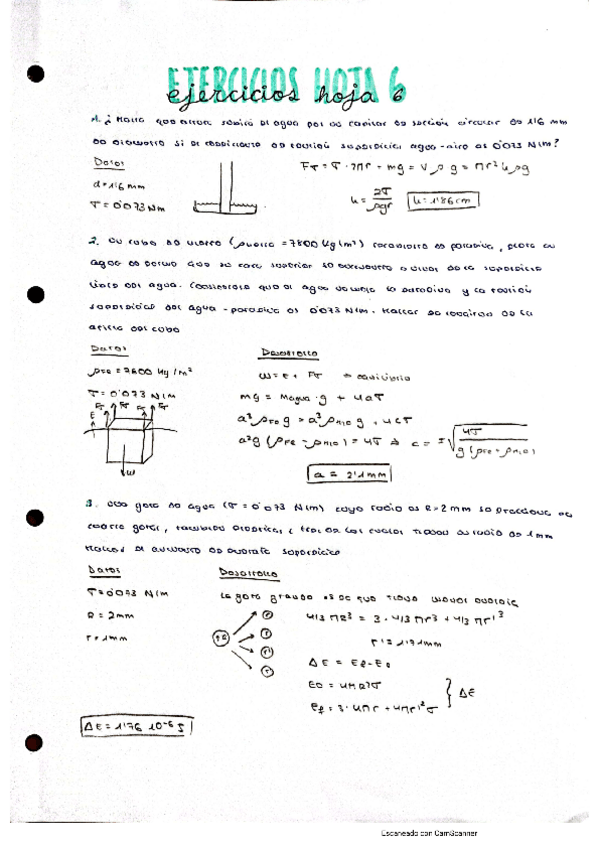 EJERCICIOS HOJA 6
ejercicios hoja 6
1. ¿Hasta que altura subirá el agua por un capilar de sección circular de 1'6 mm
de diametro si el coeficiente de tensión superficial agua-aire es 0'073 N/m?
Datos
d = 1'6 mm
T = 0'073 Nm
Fτ = τ · 2πr = mg = V ρ g = πr² h ρg
h = 2τ / ρgr
h = 1'86 cm
2. Un cubo de (ρ = 7800 kg/m³) recubierto de parafina, flota en
agua de forma que su cara superior se encuentra a nivel de la superficie
libre del agua. que el agua no la parafina y la tensión
superficial del agua-parafina es 0'073 N/m. Hallar la longitud de la
arista del cubo
Datos
ρFe = 7800 Kg/m³
T = 0'073 N/m
Fτ Fτ Fτ Fτ
E
W
Desarrollo
W = E + Fτ equilibrio
mg = magua · g + 4aτ
a³ ρFe g = a³ρH2O g + 4aτ
a²g (ρFe - ρH2O) = 4τ
4τ
g (ρFe - ρH2O)
a = 2'1 mm
3. Una gota de agua (τ = 0'073 N/m) cuyo radio es R = 2 mm se fracciona en
cuatro gotas, también esféricas, tres de las cuales tienen un radio de 1 mm
Hallar el aumento de energía superficial
Datos
T = 0'073 N/m
R = 2mm
r = 1mm
Desarrollo
La gota grande es la que tiene menos energía
4/3 πR³ = 3 · 4/3 πr³ + 4/3 πr'³
r' = 1'71mm
ΔE = Ef - E0
E0 = 4πR²τ
Ef = 3 · 4πr + 4πr'²τ
ΔE
ΔE = 1'76 10⁻⁶ J
Escaneado con CamScanner